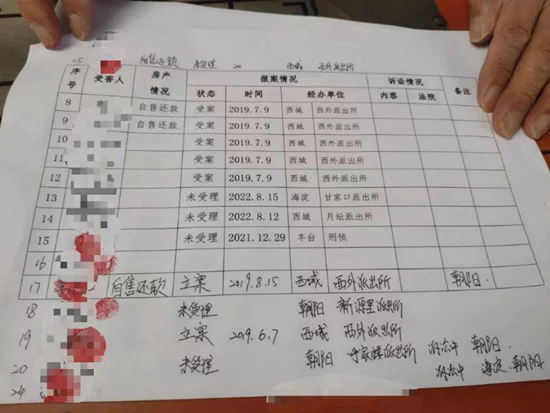 25 自售还款 未受理 20 西城 西外派出所
序号 受害人 房产情况 报案情况 诉讼情况 备注
状态 时间 经办单位 内容 法院
8 自售还款 受案 2019.7.9 西城 西外派出所
9 自售还款 受案 2019.7.9 西城 西外派出所
10 受案 2019.7.9 西城 西外派出所
11 受案 2019.7.9 西城 西外派出所
12 受案 2019.7.9 西城 西外派出所
13 未受理 2022.8.15 海淀 甘家口派出所
14 未受理 2022.8.12 西城 月坛派出所
15 未受理 2021.12.29 丰台 刑侦
16
17 自售还款 立案 2019.8.15 西城 西外派出所 朝阳
18 未受理 朝阳 新源里派出所
19 立案 2019.6.7 西城 西外派出所 朝阳
20 未受理 朝阳 呼家楼派出所 海淀 朝阳
24